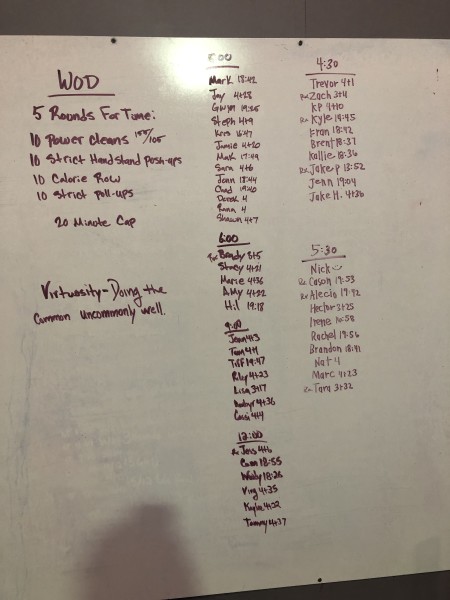 WOD
5 Rounds For Time:
10 Power Cleans 155/105
10 Strict Handstand Push-ups
10 Calorie Row
10 Strict Pull-ups
20 Minute Cap
Virtuosity - Doing the
Common uncommonly well.
5:00
Mark 18:42
Jay 4+28
Steph 4+9
Kris 16:47
Jamie 4+20
Mark 17:49
Sara 4+6
Jenn 18:44
Chad 19:40
Derek 4
Shawn 4+7
6:00
Rx Brady 5+5
Stacy 4+21
Marie 4+36
Amy 4+22
Hil 19:18
9:00
Jenn 4+3
Tiff 19:47
Riley 4+23
Lisa 3+17
Cassi 4+4
12:00
Rx Jess 4+6
Cam 18:55
Wendy 18:26
Ving 4+35
Kaylee 4+22
Tammy 4+37
4:30
Trevor 4+1
Rx Zach 3+4
KP 4+10
Rx Kyle 19:45
Fran 18:42
Brent 18:37
Kallie 18:36
Rx Jake P 13:52
Jenn 19:04
Jake H. 4+36
5:30
Nick
Rx Cason 19:53
Rx Alecia 19:42
Hector 3+25
Irene 16:58
Rachel 19:56
Brandon 18:41
Nat 4
Marc 4+23
Rx Tara 3+32